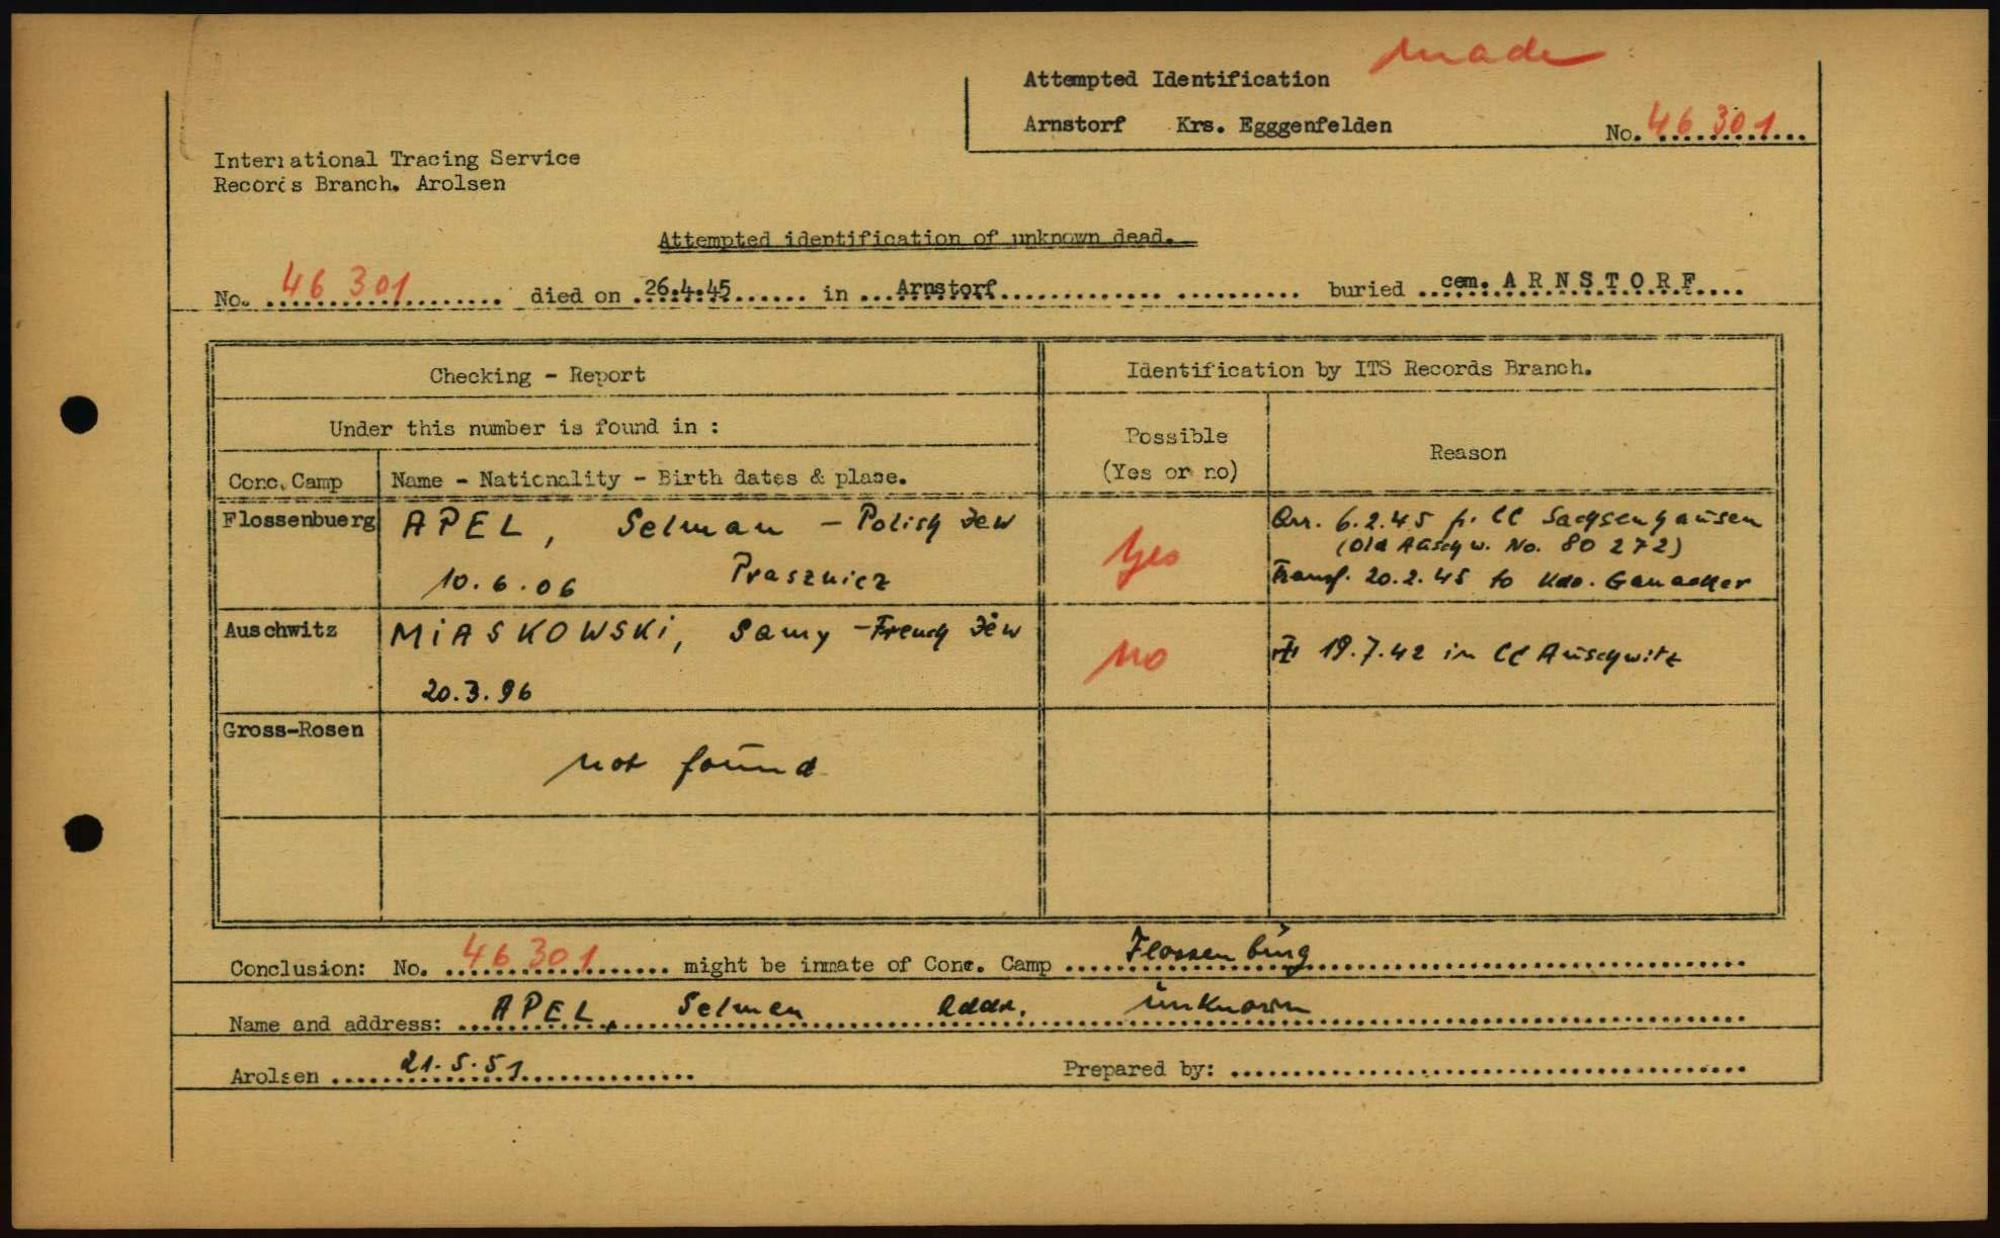 made
Attempted Identification
Arnstorf Krs. Egggenfelden No. 46 301
International Tracing Service
Records Branch. Arolsen
Attempted identification of unknown dead.
No. 46 301 died on 26.4.45 in Arnstorf buried cem. ARNSTORF
Checking - Report
Identification by ITS Records Branch.
Under this number is found in :
Possible
(Yes or no)
Reason
Conc. Camp
Name - Nationality - Birth dates & place.
Flossenbuerg
APEL, Selman - Polish Jew
10.6.06 Prasznicz
yes
Arr. 6.2.45 fr. CC Sachsenhausen
(Old Auschw. No. 80 272)
Transf. 20.2.45 to Kdo. Ganacker
Auschwitz
MIASKOWSKI, Samy - French Jew
20.3.96
no
19.7.42 in CC Auschwitz
Gross-Rosen
not found
Conclusion: No. 46 301 might be inmate of Conc. Camp Flossenbürg
Name and address: APEL, Selman Addr. unknown
Arolsen 21.5.51
Prepared by: